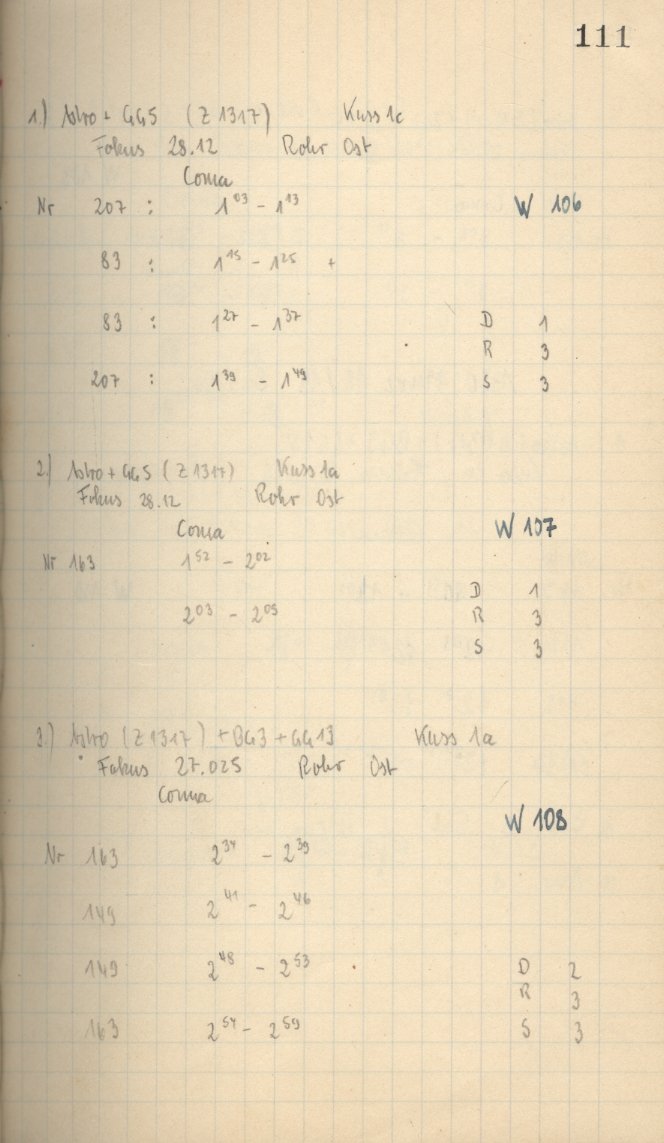 111
1) Astro + GG5 (Z 1317) Kass 1c
Fokus 28.12 Rohr Ost
Coma
Nr 207 : 1⁰³ - 1¹³ W 106
83 : 1¹⁵ - 1²⁵ +
83 : 1²⁷ - 1³⁷ D 1
R 3
207 : 1³⁹ - 1⁴⁹ S 3
2) Astro + GG5 (Z 1317) Kass 1a
Fokus 28.12 Rohr Ost
Coma W 107
Nr 163 1⁵² - 2⁰²
D 1
2⁰³ - 2⁰⁵ R 3
S 3
3.) Astro (Z 1317) + BG3 + GG13 Kass 1a
Fokus 27.025 Rohr Ost
Coma
W 108
Nr 163 2³⁴ - 2³⁹
149 2⁴¹ - 2⁴⁶
149 2⁴⁸ - 2⁵³ D 2
R 3
163 2⁵⁴ - 2⁵⁹ S 3